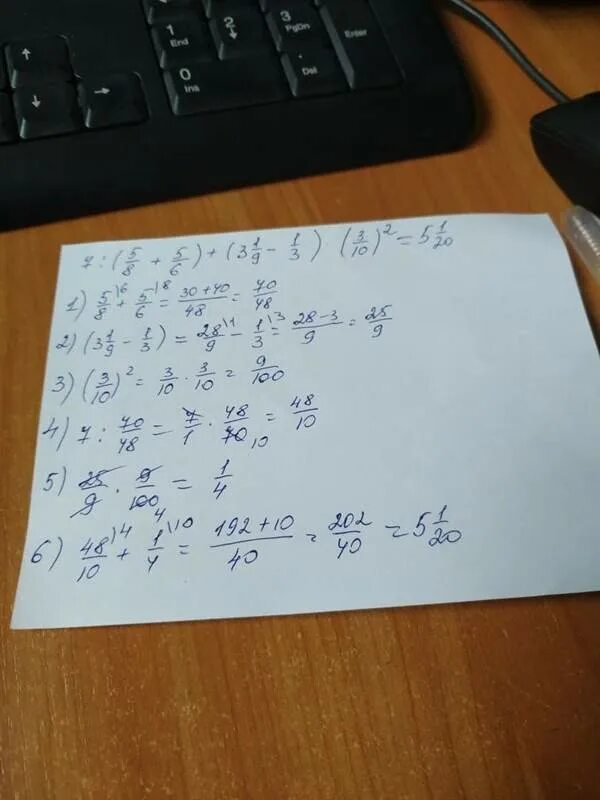 1
End
2
↓
3
PgDn
Enter
0
Ins
.
Del
↑
↓
→
7 : (5/8 + 5/6) + (3 1/9 - 1/3) (3/10)² = 5 1/20
1) 5/8 \6 + 5/6 \8 = 30+40/48 = 70/48
2) (3 1/9 - 1/3) = 28/9 \1 - 1/3 \3 = 28-3/9 = 25/9
3) (3/10)² = 3/10 · 3/10 = 9/100
4) 7 : 70/48 = 7/1 · 48/70 10 = 48/10
5) 25/9 · 9/100 4 = 1/4
6) 48/10 \4 + 1/4 \10 = 192+10/40 = 202/40 = 5 1/20